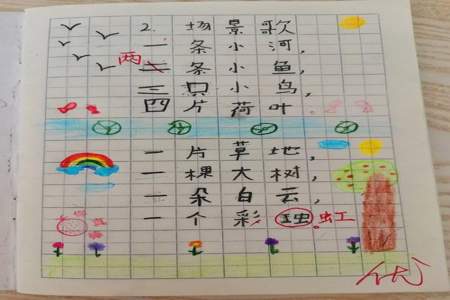 2. 场景歌
一条小河,
两二条小鱼,
三只小鸟,
四片荷叶
一片草地,
一棵大树,
一朵白云,
一个彩虹
优